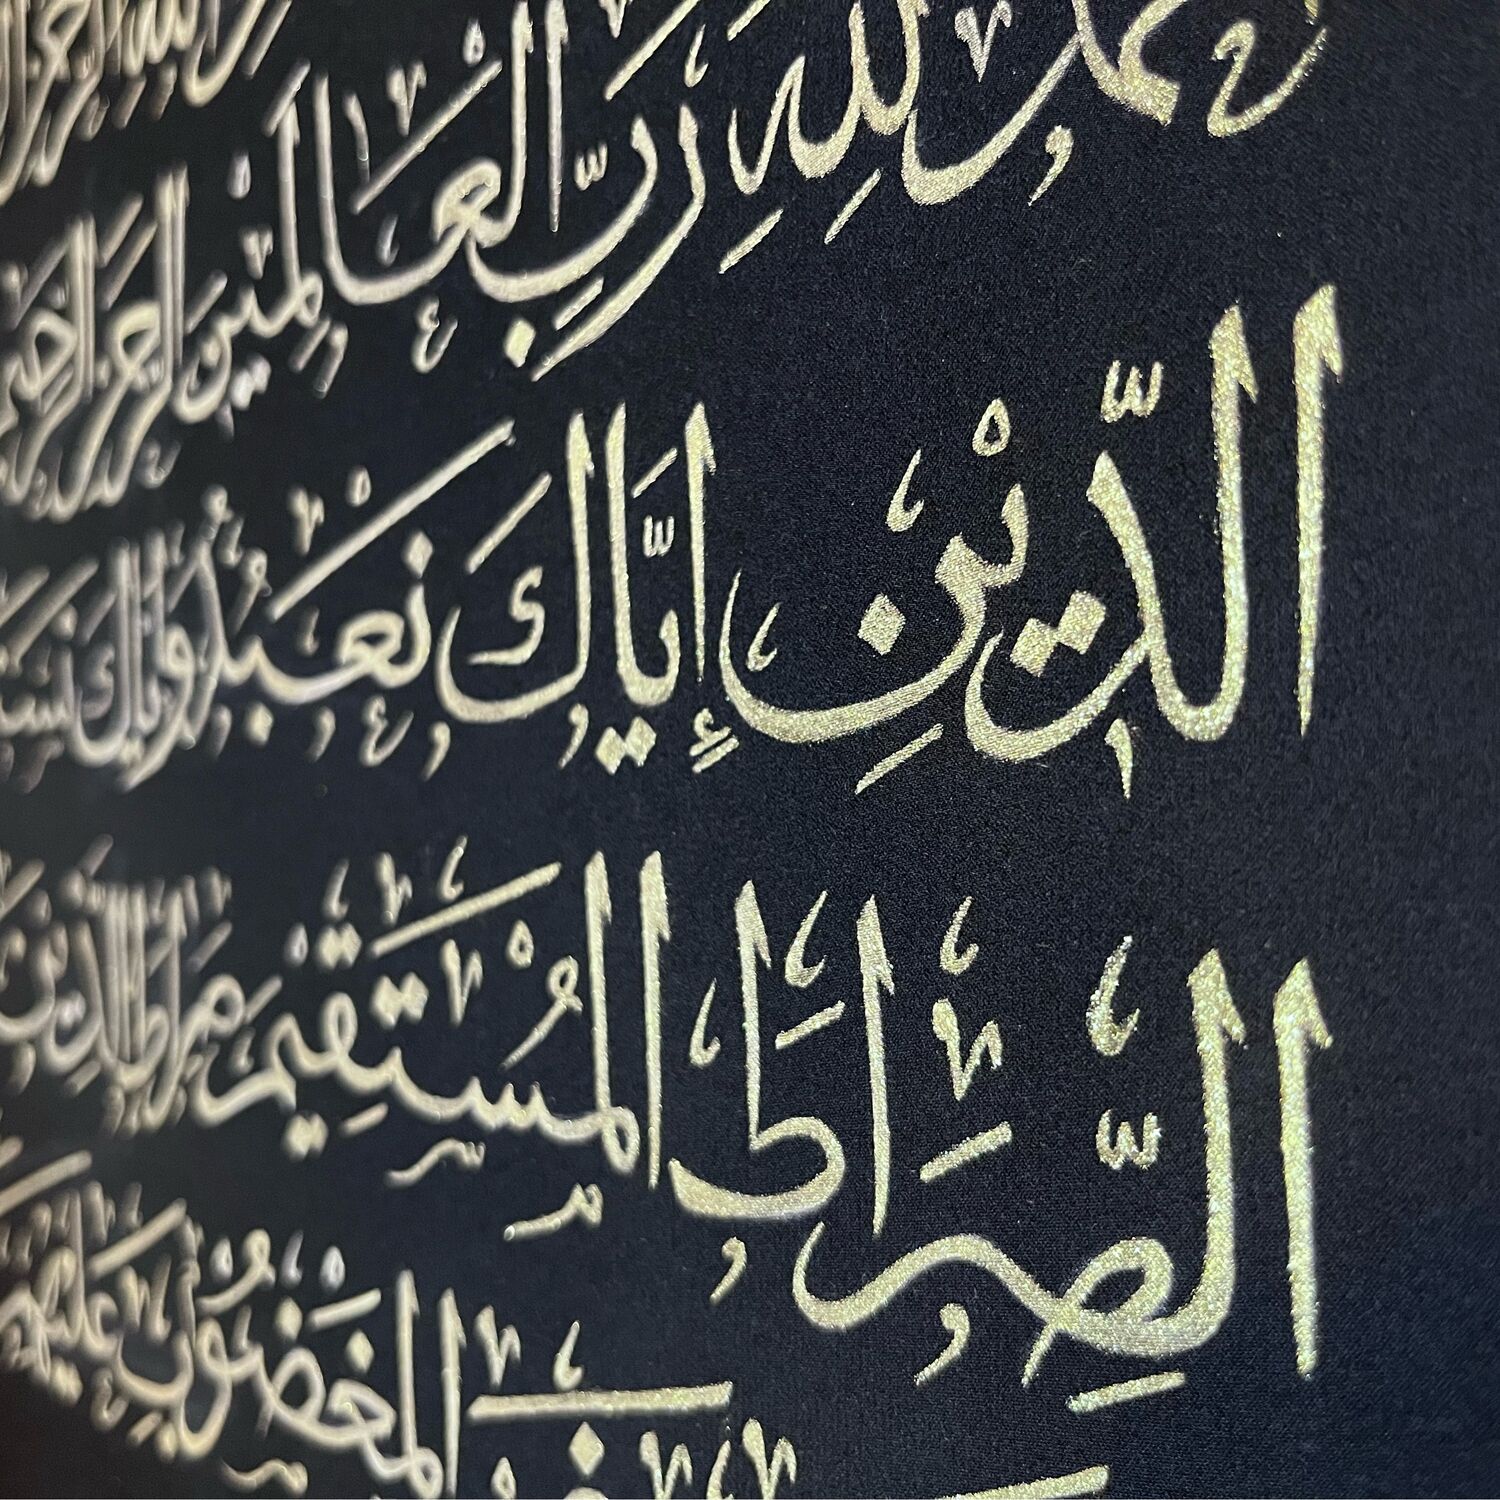 بسم الله الرحمن
الحمد لله رب العالمين الرحمن الرحيم
الدِّيْنِ إِيَّاكَ نَعْبُدُ وَإِيَّاكَ نَسْتَ
الصِّرَاطَ الْمُسْتَقِيْمَ صِرَاطَ الَّذِيْنَ
غَيْرِ الْمَغْضُوْبِ عَلَيْهِمْ